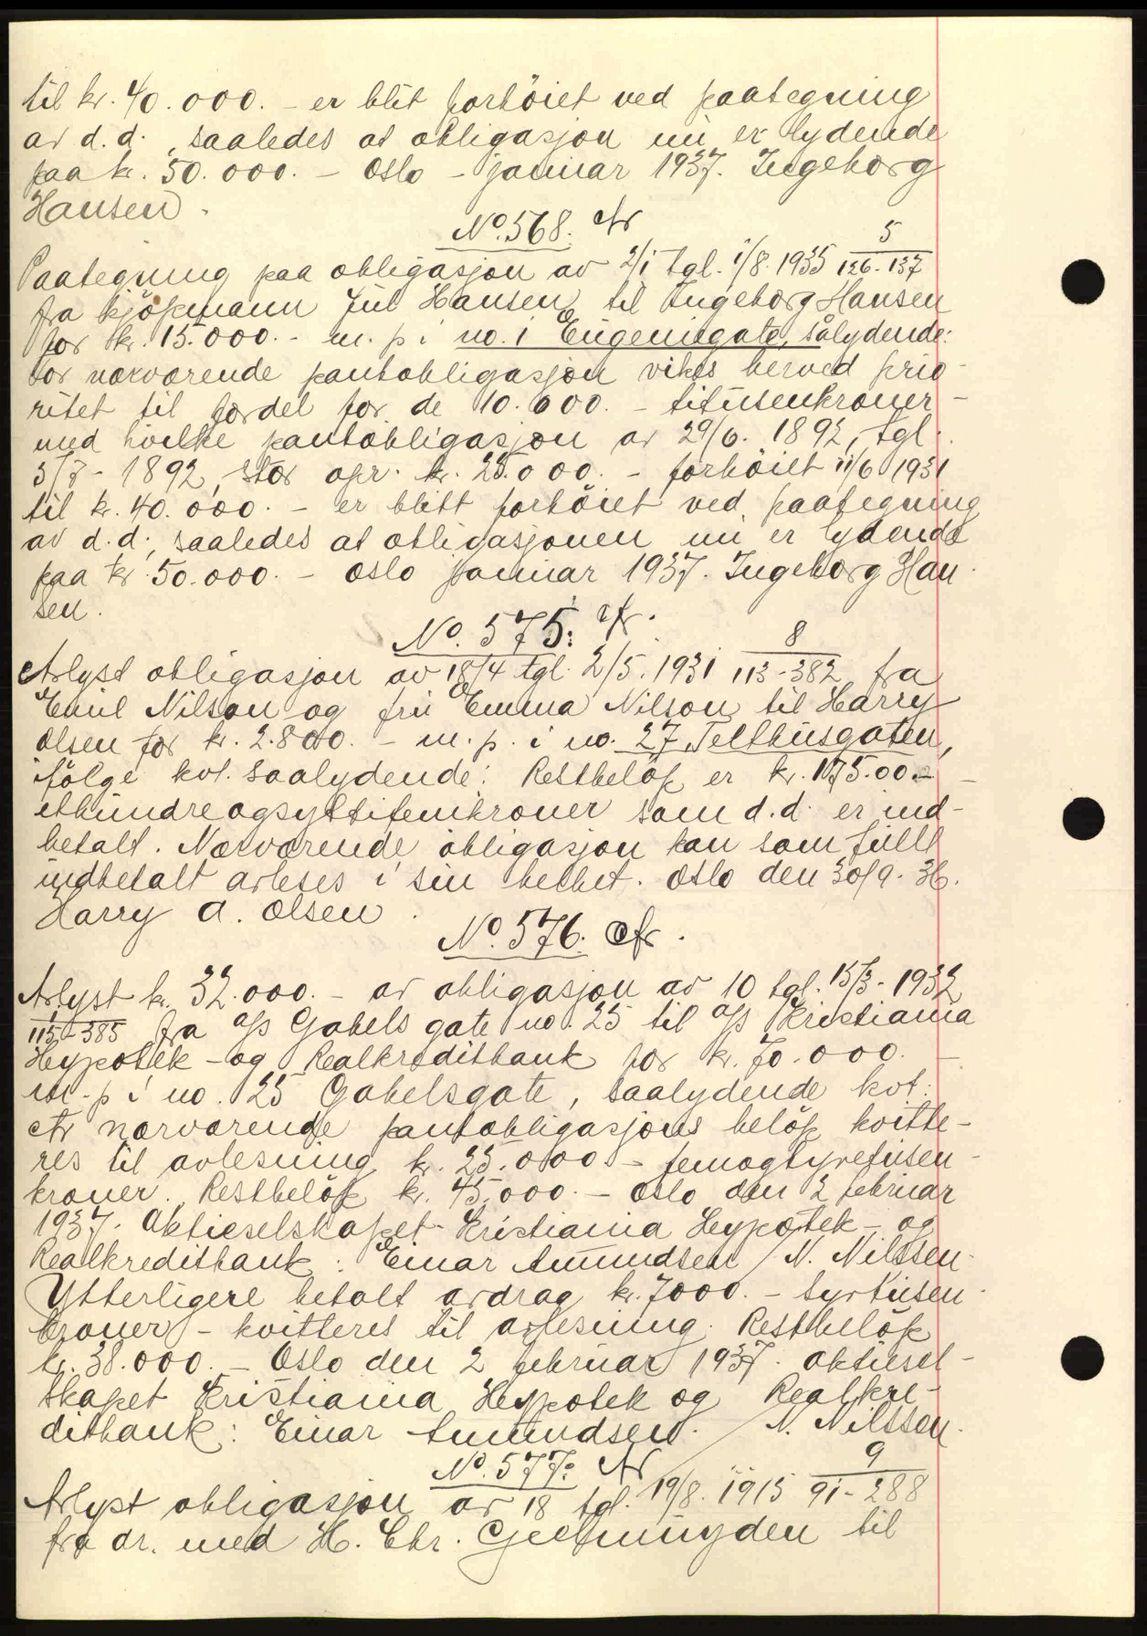 til kr. 40.000. – er blit forhöiet ved paategning
av d.d., saaledes at obligasjon nu er lydende
paa kr. 50.000. – Oslo – januar 1937. Ingeborg
Hansen.
No. 568. Av
5
Paategning paa obligasjon av 2/1 tgl. 1/8. 1935 126-137
fra kjöpmann Jul Hansen til Ingeborg Hansen
for kr. 15.000. – m. p. i no. 1 Eugeniegate, sålydende:
For nærværende pantobligasjon vikes herved prio-
ritet til fordel for de 10.000. – titusenkroner –
med hvilke pantobligasjon av 29/6. 1892, tgl.
5/8 - 1892, stor opr. kr. 25.000. – forhöiet 11/6 1931
til kr. 40.000. – er blitt forhöiet ved paategning
av d.d., saaledes at obligasjonen nu er lydende
paa kr. 50.000. – Oslo januar 1937. Ingeborg Han-
sen.
No. 575. Av.
8
Avlyst obligasjon av 18/4 tgl. 2/5. 1931 113-382 fra
Emil Nilson og fru Emma Nilson til Harry
Olsen for kr. 2.800. – m. p. i no. 27 Telthusgaten,
ifölge kvt. saalydende: Restbelöp er kr. 175.00 –
ethundreogsyttifemkroner som d.d. er ind-
betalt. Nærværende obligasjon kan som fullt
indbetalt avleses i sin helhet. Oslo den 30/9. 36.
Harry A. Olsen.
No. 576. Av.
Avlyst kr. 32.000. – av obligasjon av 10 tgl. 15/3 - 1932
115-385 fra A/S Gabels gate no. 25 til A/S Kristiania
Hypotek – og Realkreditbank for kr. 70.000. –
m. p. i no. 25 Gabelsgate, saalydende kvt.:
Av nærværende pantobligasjons belöp kvitte-
res til avlesning kr. 25.000 – femogtyvetusen-
kroner. Restbelöp kr. 45.000. – Oslo den 2 februar
1937. Aktieselskapet Kristiania Hypotek – og
Realkreditbank: Einar Amundsen / N. Nilssen.
Ytterligere betalt avdrag kr. 7000. – syvtusen-
kroner – kvitteres til avlesning. Restbelöp
kr. 38.000. – Oslo den 2 februar 1937. Aktiesel-
skapet Kristiania Hypotek og Realkre-
ditbank: Einar Amundsen. / N. Nilssen.
No. 577. Av
9
Avlyst obligasjon av 18 tgl. 19/8. 1915 91-288
fra dr. med H. Chr. Geelmuyden til